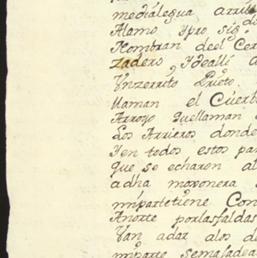 mediálegua arri
Alamo ypro sig.
Nombran deel Cer
zadero, Ydealli a
Ynzerrito Prieto,
llaman el Cuerb
Arroyo quellaman
Los Arrieros donde
Yen todos estos par
que se echaren al
adha moxonera
imparte tiene Con
Anorte porlasfaldas
Van adar alos de
imparte semaladea